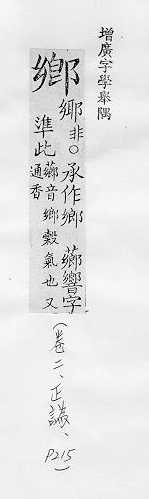 增廣字學舉隅
鄉
鄉非○承作鄉 薌響字
準此薌音鄉穀氣也又
通香
(卷二、正譌、P215)